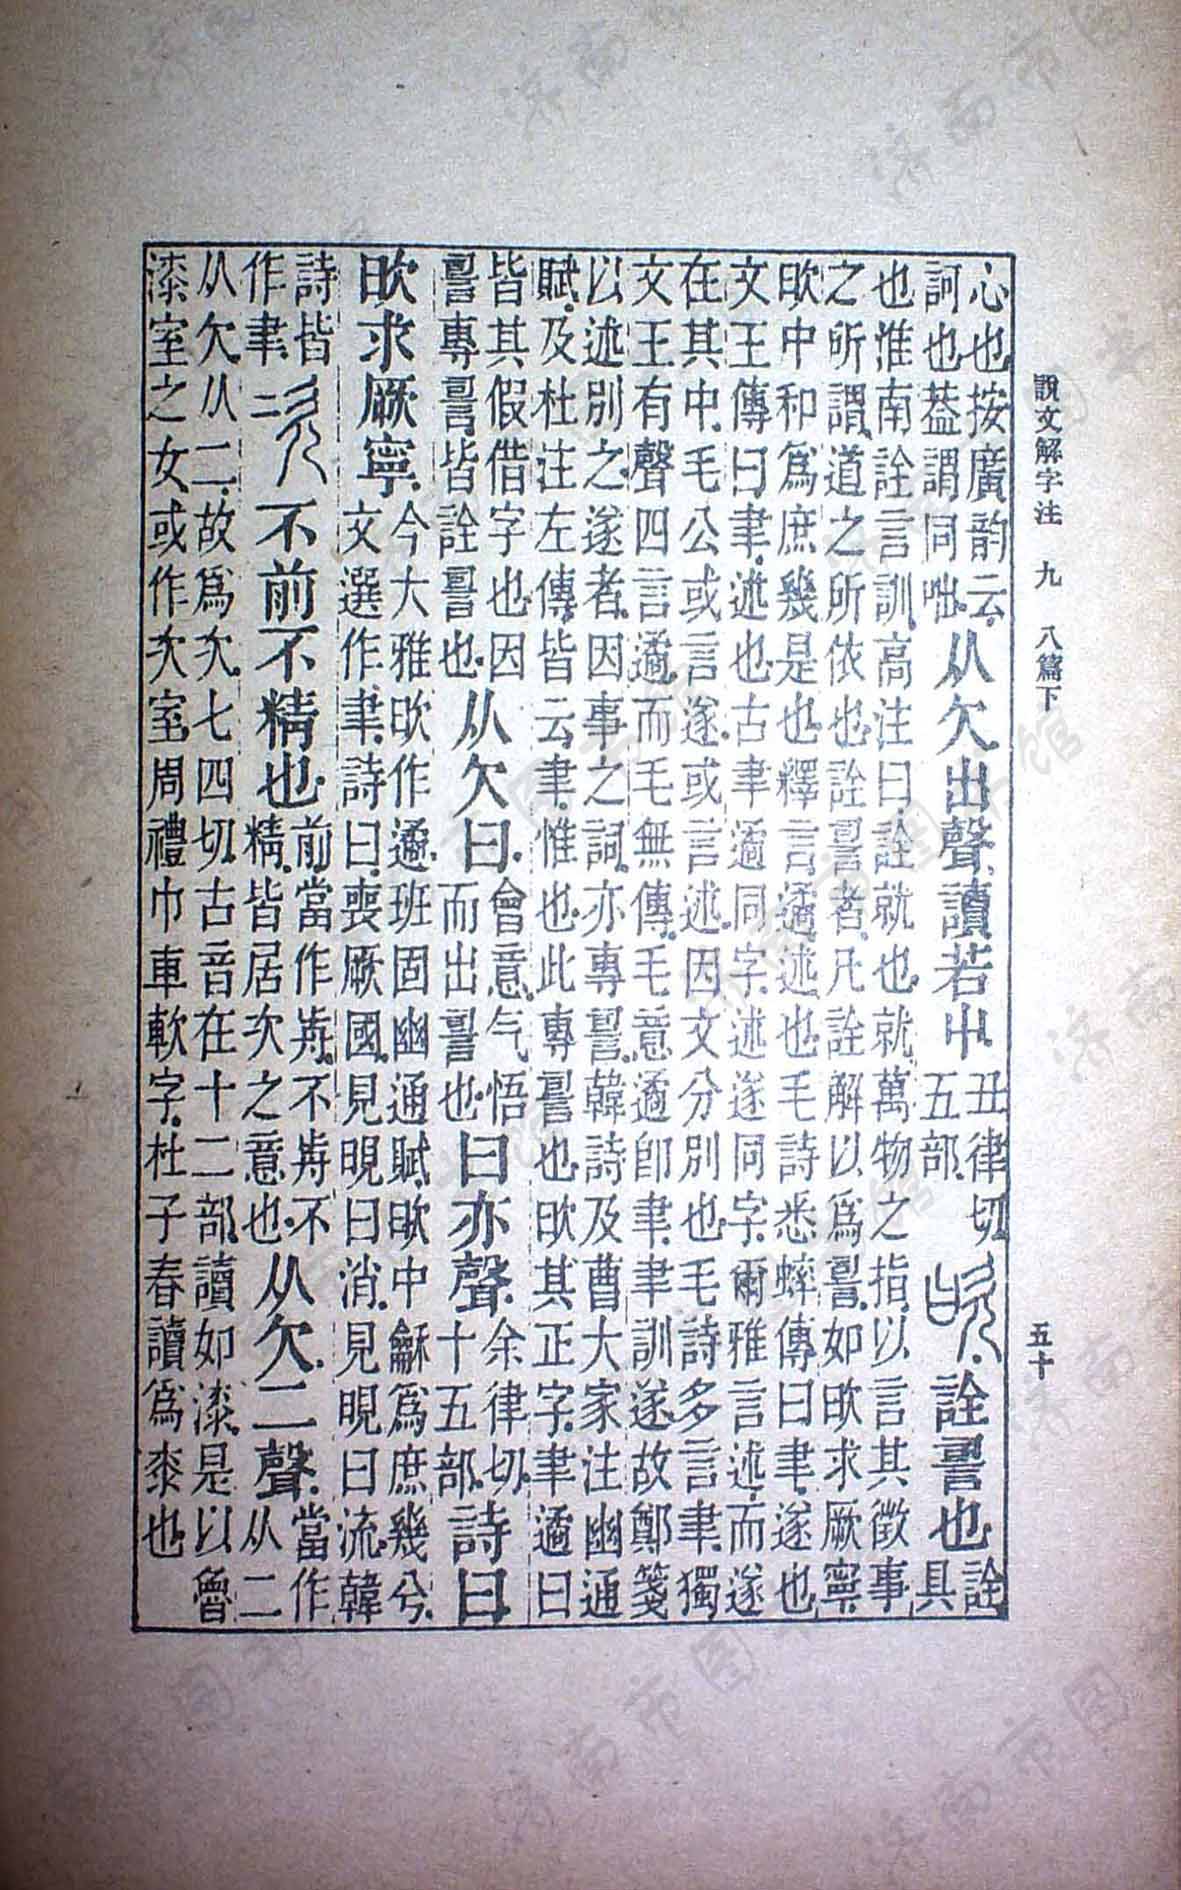 說文解字注　九　八篇下　五十
心也按廣韵云
訶也葢謂同咄
从欠出聲讀若屮
丑律切
五部
詮䛐也
詮
具
也淮南詮言訓高注曰詮就也就萬物之指以言其徵事
之所謂道之所依也詮䛐者凡詮解以爲䛐如欥求厥寧
欥中和爲庶幾是也釋言遹述也毛詩悉蟀傳曰聿遂也
文王傳曰聿述也古聿遹同字述遂同字爾雅言述而遂
在其中毛公或言遂或言述因文分別也毛詩多言聿獨
文王有聲四言遹而毛無傳毛意遹卽聿聿訓遂故鄭箋
以述別之遂者因事之詞亦專䛐韓詩及曹大家注幽通
賦及杜注左傳皆云聿惟也此專䛐也欥其正字聿遹曰
皆其假借字也因
䛐專䛐皆詮䛐也
从欠曰
會意气悟
而出䛐也
曰亦聲
余律切
十五部
詩曰
欥求厥寧
今大雅欥作遹班固幽通賦欥中龢爲庶幾兮
文選作聿詩曰喪厥國見晛曰消見晛曰流韓
詩皆
作聿
次
不前不精也
前當作歬不歬不
精皆居次之意也
从欠二聲
當作
从二
从欠从二故爲次七四切古音在十二部讀如漆是以魯
漆室之女或作次室周禮巾車軟字杜子春讀爲桼也